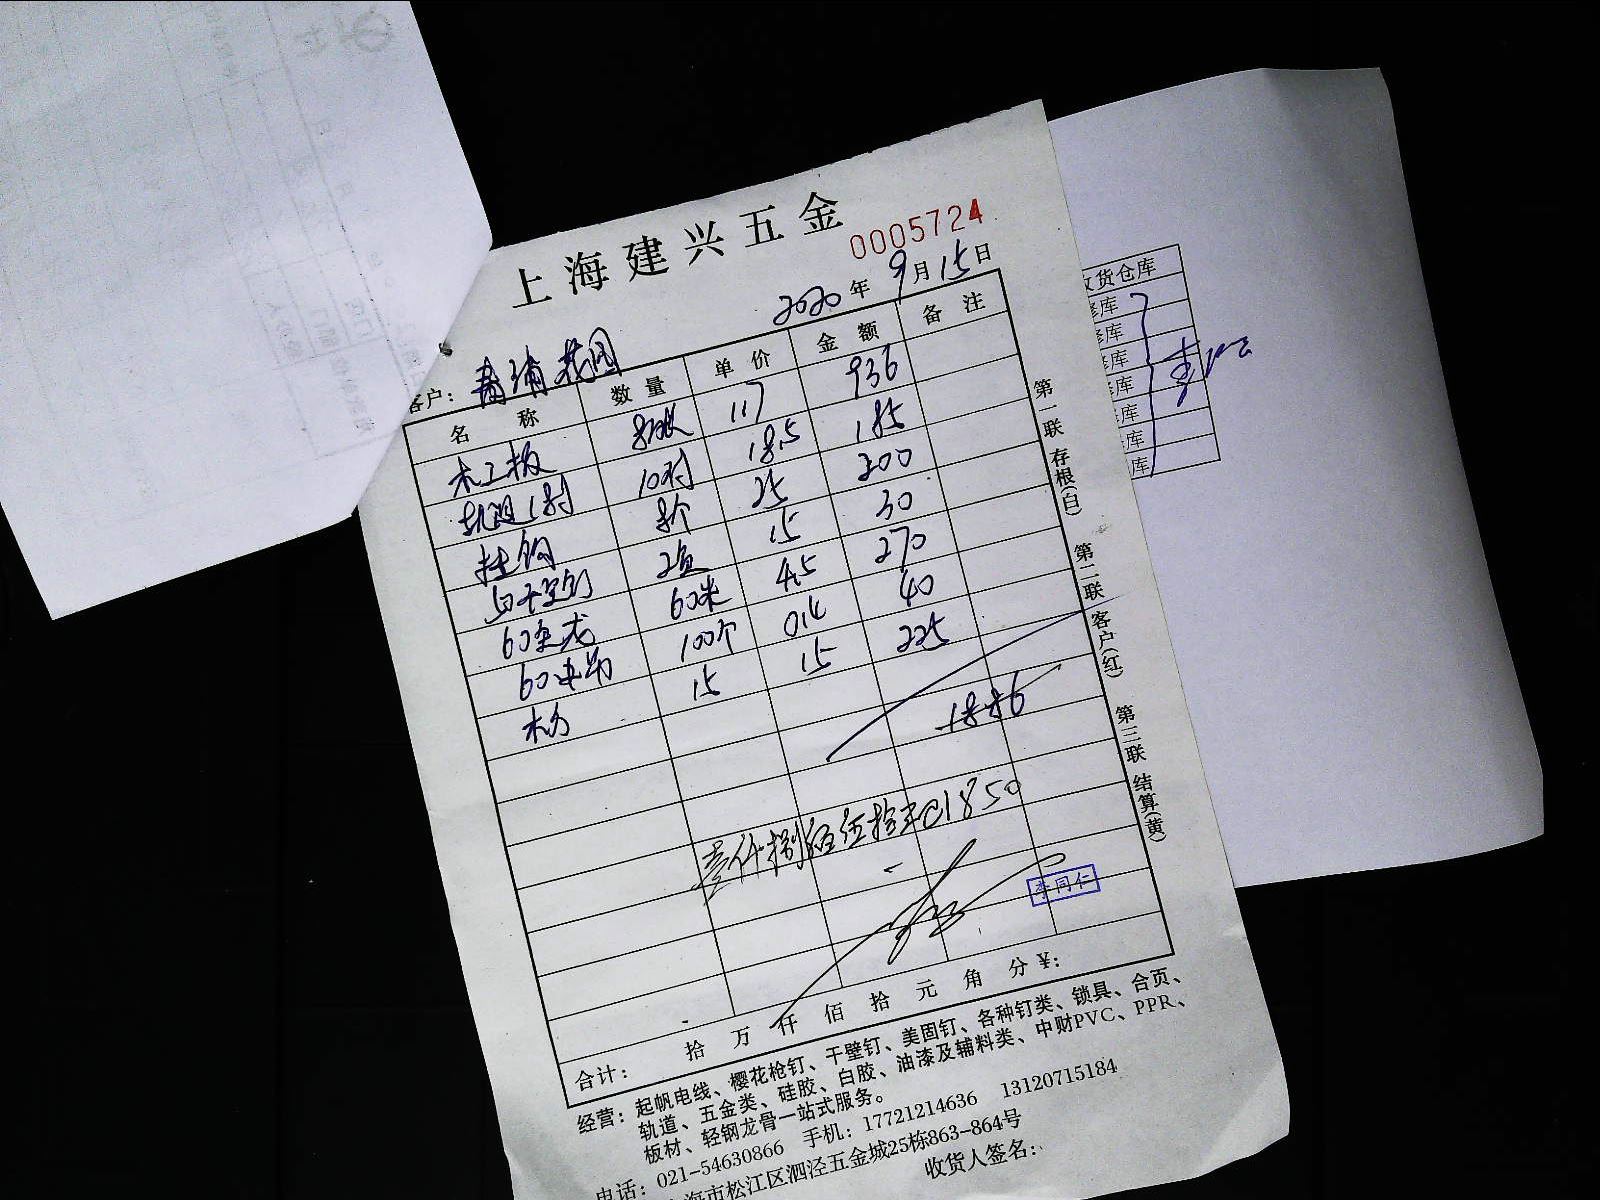 上海建兴五金
0005724
2020年9月15日
客户：青浦花园
名称 数量 单价 金额 备注
木工板 8张 117 936
轨道18寸 10对 18.5 185
挂钩 8个 25 200
2盒 15 30
60米 4.5 270
100个 0.4 40
15 15 225
1886
壹仟捌佰伍拾元 1850
李同仁
合计： 拾 万 仟 佰 拾 元 角 分 ¥：
经营：起帆电线、樱花枪钉、干壁钉、美固钉、各种钉类、锁具、合页、
轨道、五金类、硅胶、白胶、油漆及辅料类、中财PVC、PPR、
板材、轻钢龙骨一站式服务。
电话：021-54630866 手机：17721214636 13120715184
海市松江区泗泾五金城25栋863-864号
收货人签名：
第一联 存根(白) 第二联 客户(红) 第三联 结算(黄)
收货仓库
库
库
库
库
库
库
库